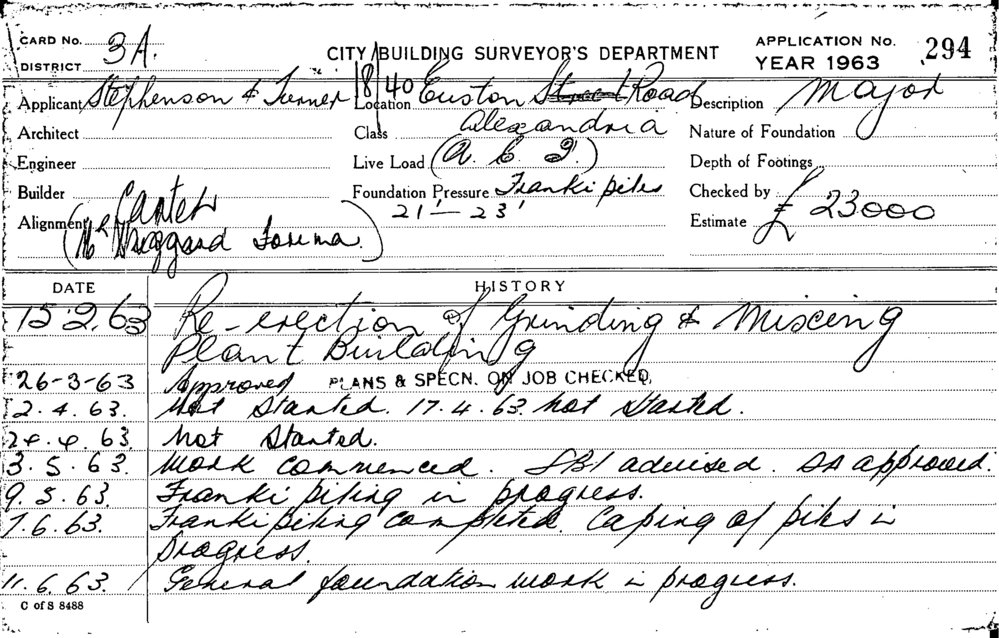 CARD No. 3A.
DISTRICT
CITY BUILDING SURVEYOR'S DEPARTMENT
APPLICATION No. 294
YEAR 1963
Applicant Stephenson & Turner
Location 18/40 Euston Street Road
Alexandria
Description Major
Architect
Class
Nature of Foundation
Engineer
Live Load (A. C. I.)
Depth of Footings
Builder Canteh
Foundation Pressure Franki piles
21' — 23'
Checked by
Alignment
(Mr Foreman.)
Estimate £ 23000
DATE HISTORY
15 2.63 Re-erection of Grinding & Mixing
Plant Building
26-3-63 Approved PLANS & SPECN. ON JOB CHECKED.
2.4.63. Not Started. 17.4.63. Not Started.
24.4.63 Not Started.
3.5.63. Work commenced. SBI advised. DA approved.
9.5.63. Franki piling in progress.
7.6.63. Franki piling completed. Caping of piles in
progress.
11.6.63. General foundation work in progress.
C of S 8488